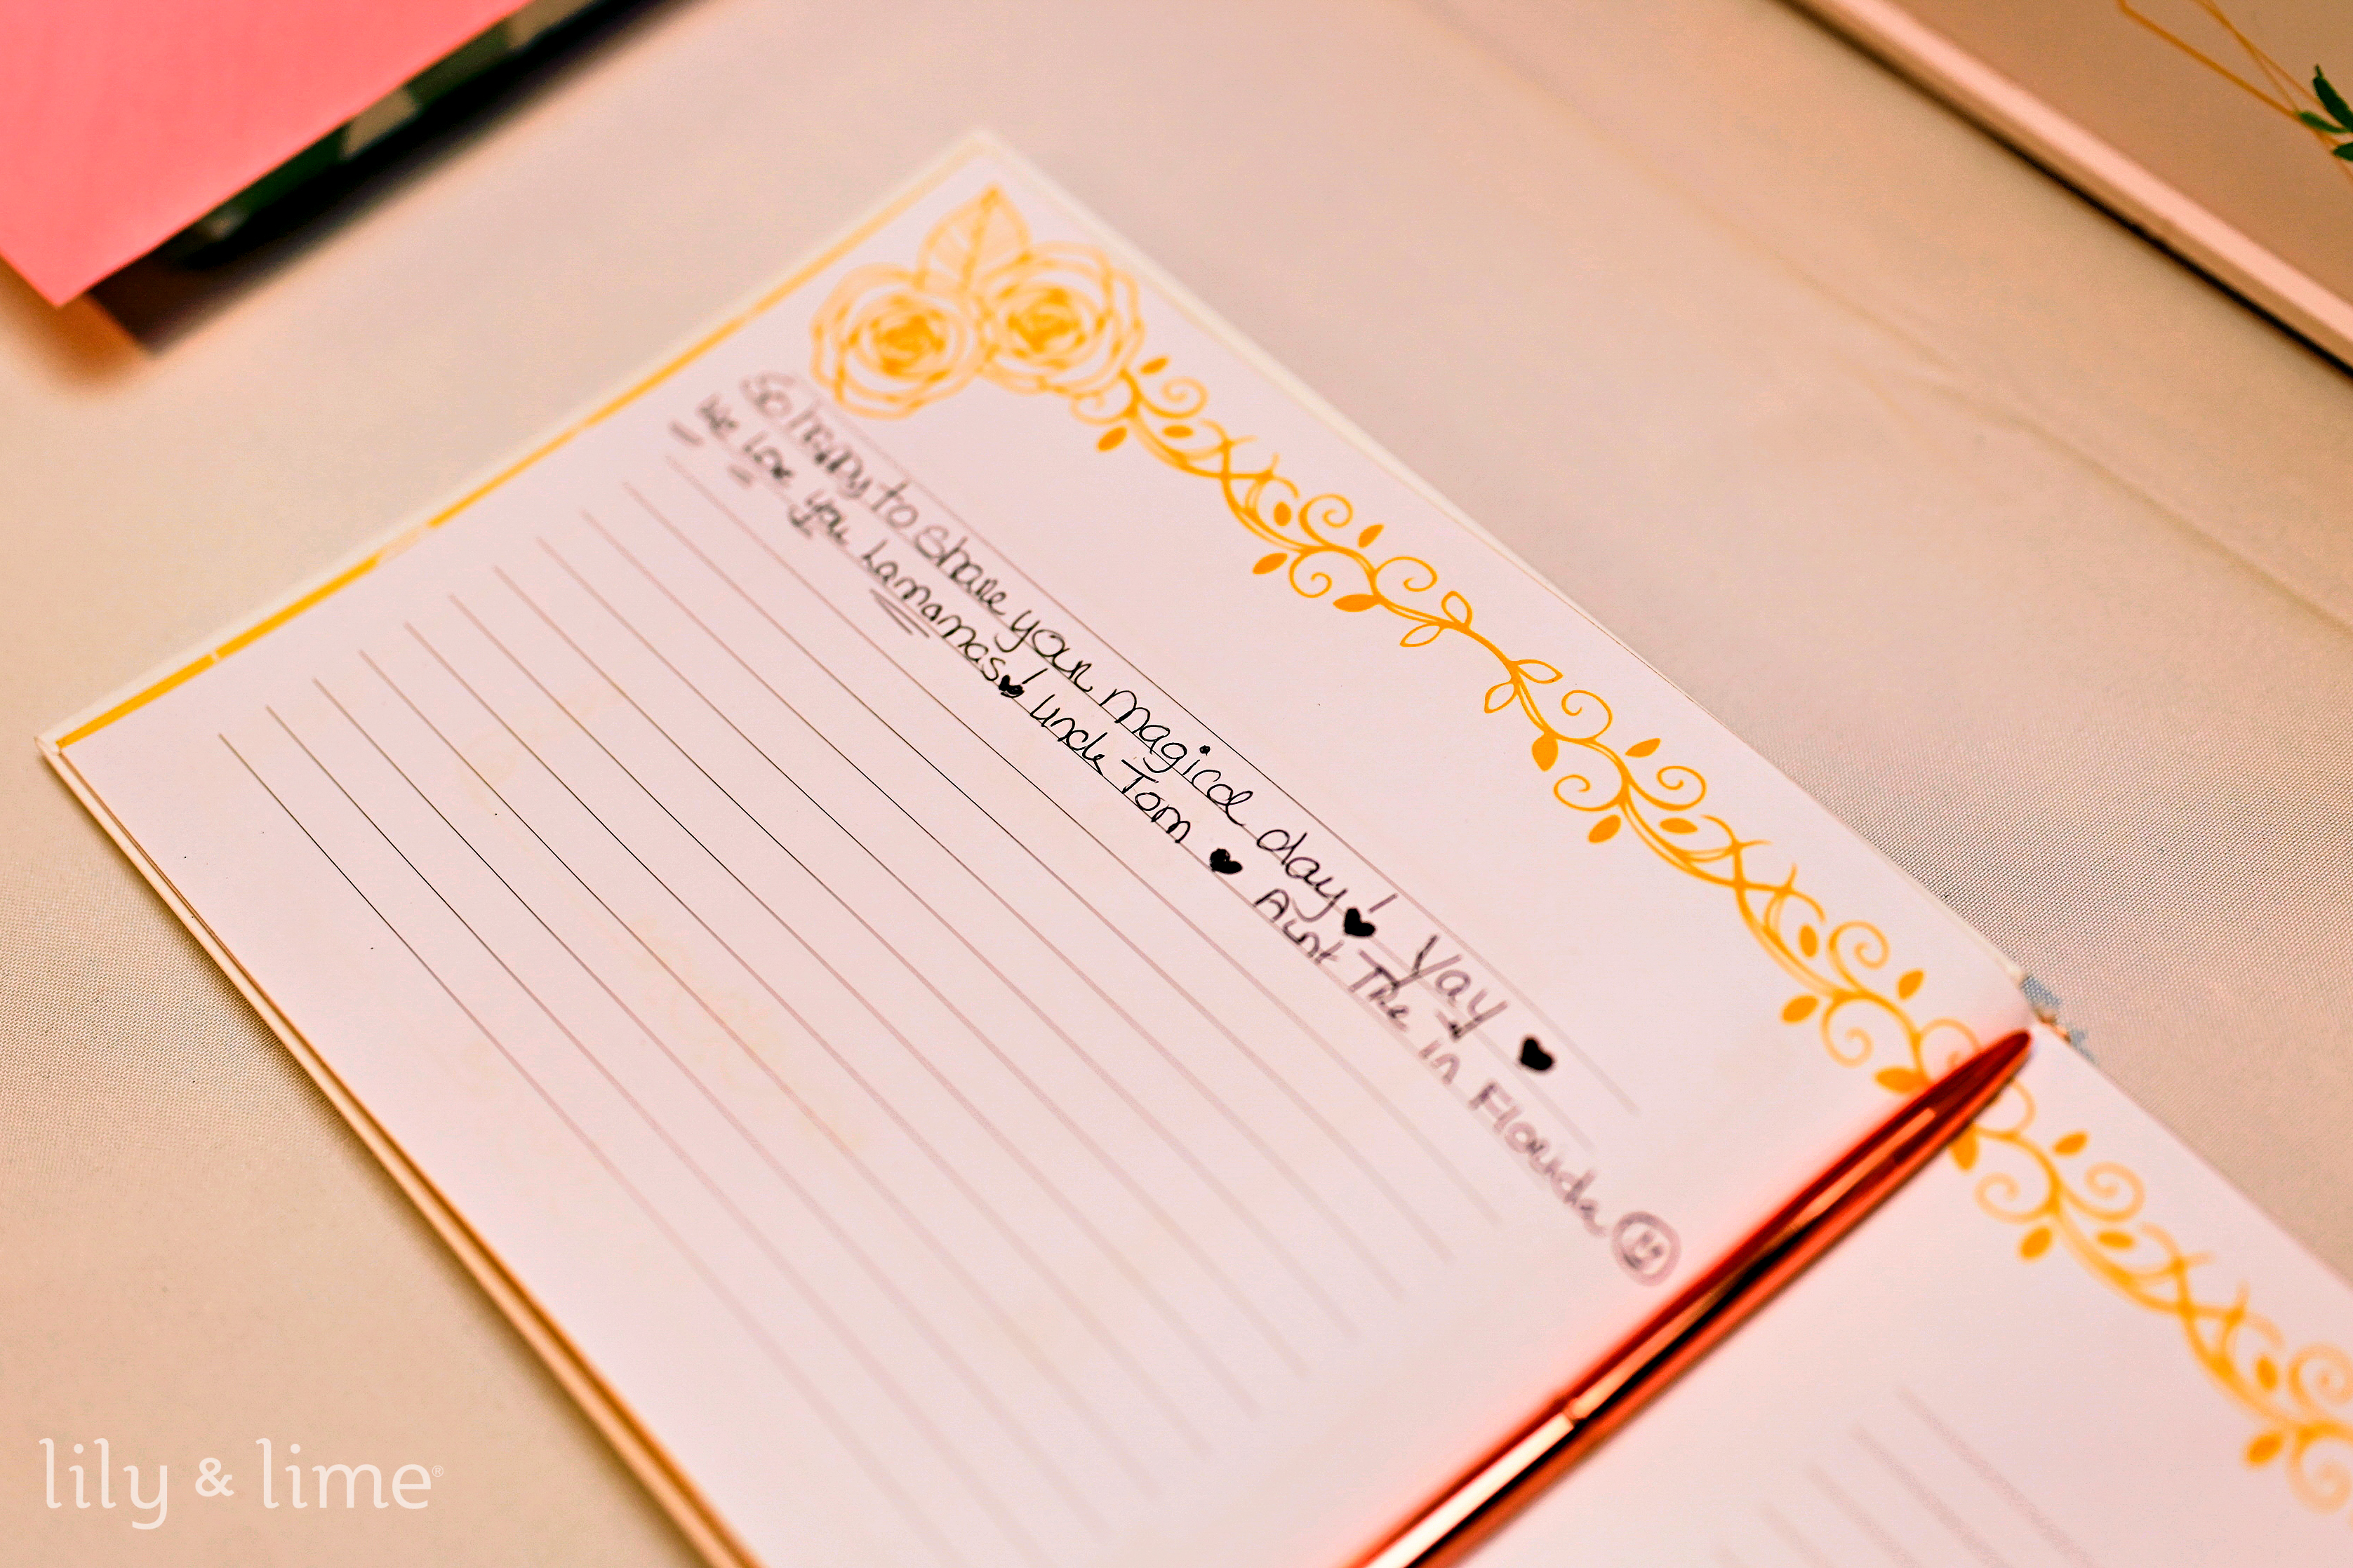 So happy to share your magical day! ♥ Yay ♥
We love you Lamamas! ♥ Uncle Tom ♥ Aunt The in Florida
lily & lime®